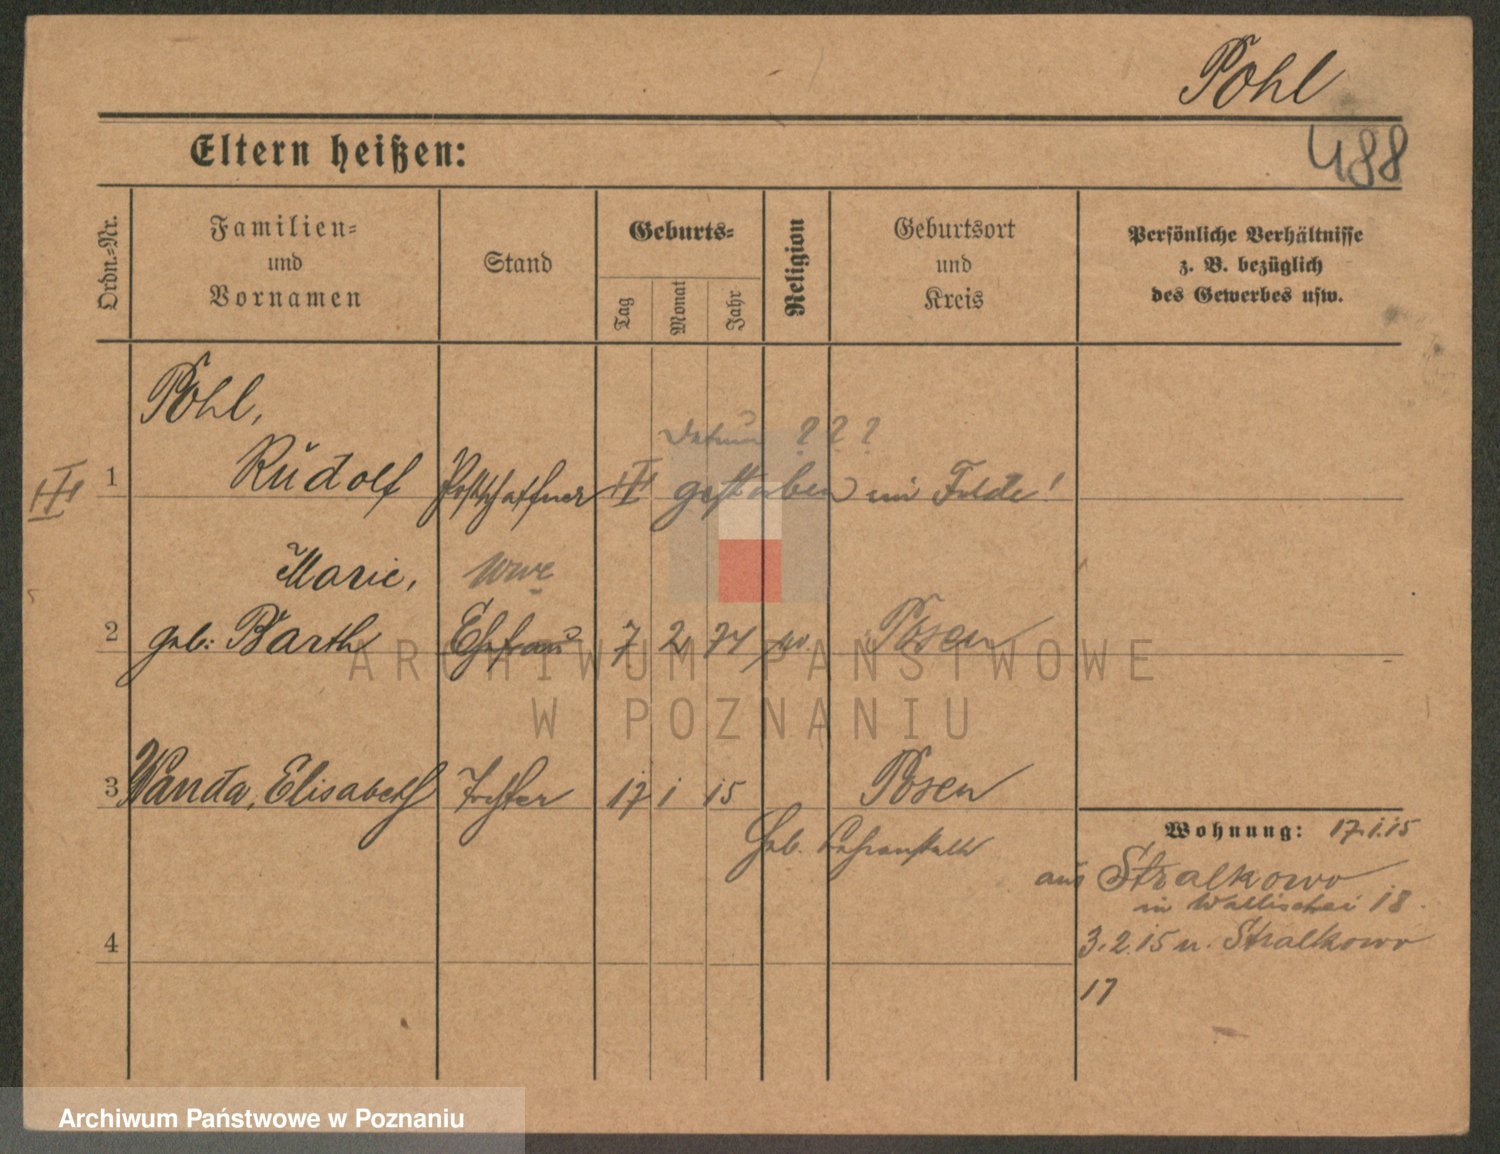 Pohl
488
Eltern heißen:
Ordn.-Nr.
Familien-
und
Vornamen
Stand
Geburts-
Tag
Monat
Jahr
Religion
Geburtsort
und
Kreis
Persönliche Verhältnisse
z. B. bezüglich
des Gewerbes usw.
Pohl,
Datum ? ? ?
1 Rudolf Postschaffner gestorben im Felde!
Marie, Wwe
2 geb: Barth Ehefrau 7 2 74 Posen
ARCHIWUM PAŃSTWOWE
W POZNANIU
3 Wanda, Elisabeth Tochter 17 1 15 Posen
Heb. Lehranstalt
Wohnung: 17.1.15
aus Stralkowo
in Wallischei 18.
3.2.15 n. Stralkowo
4
17
Archiwum Państwowe w Poznaniu